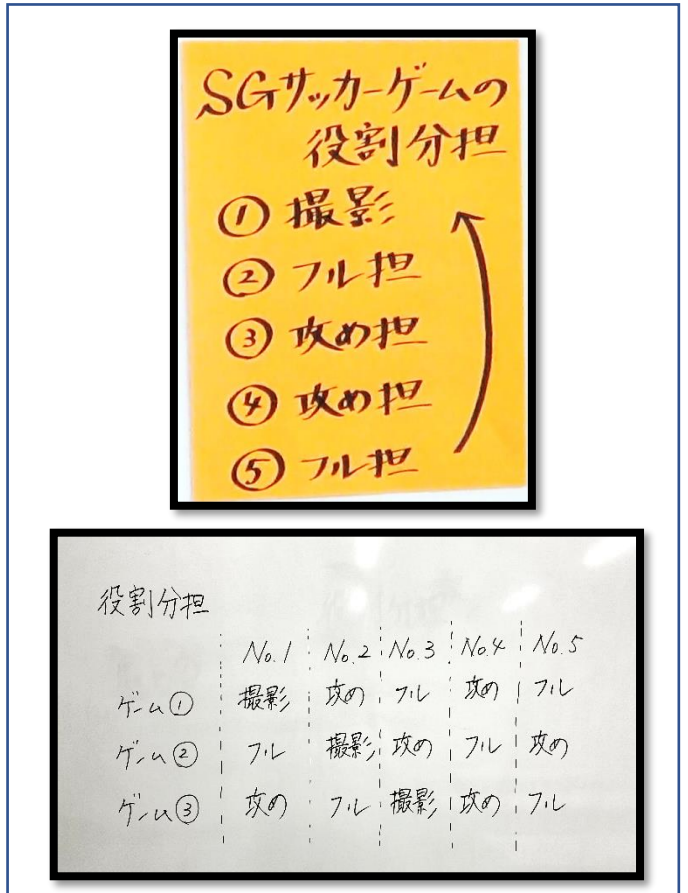 SGサッカーゲームの
役割分担
① 撮影
② フル担
③ 攻め担
④ 攻め担
⑤ フル担
役割分担
No.1 No.2 No.3 No.4 No.5
ゲーム① 撮影 攻め フル 攻め フル
ゲーム② フル 撮影 攻め フル 攻め
ゲーム③ 攻め フル 撮影 攻め フル